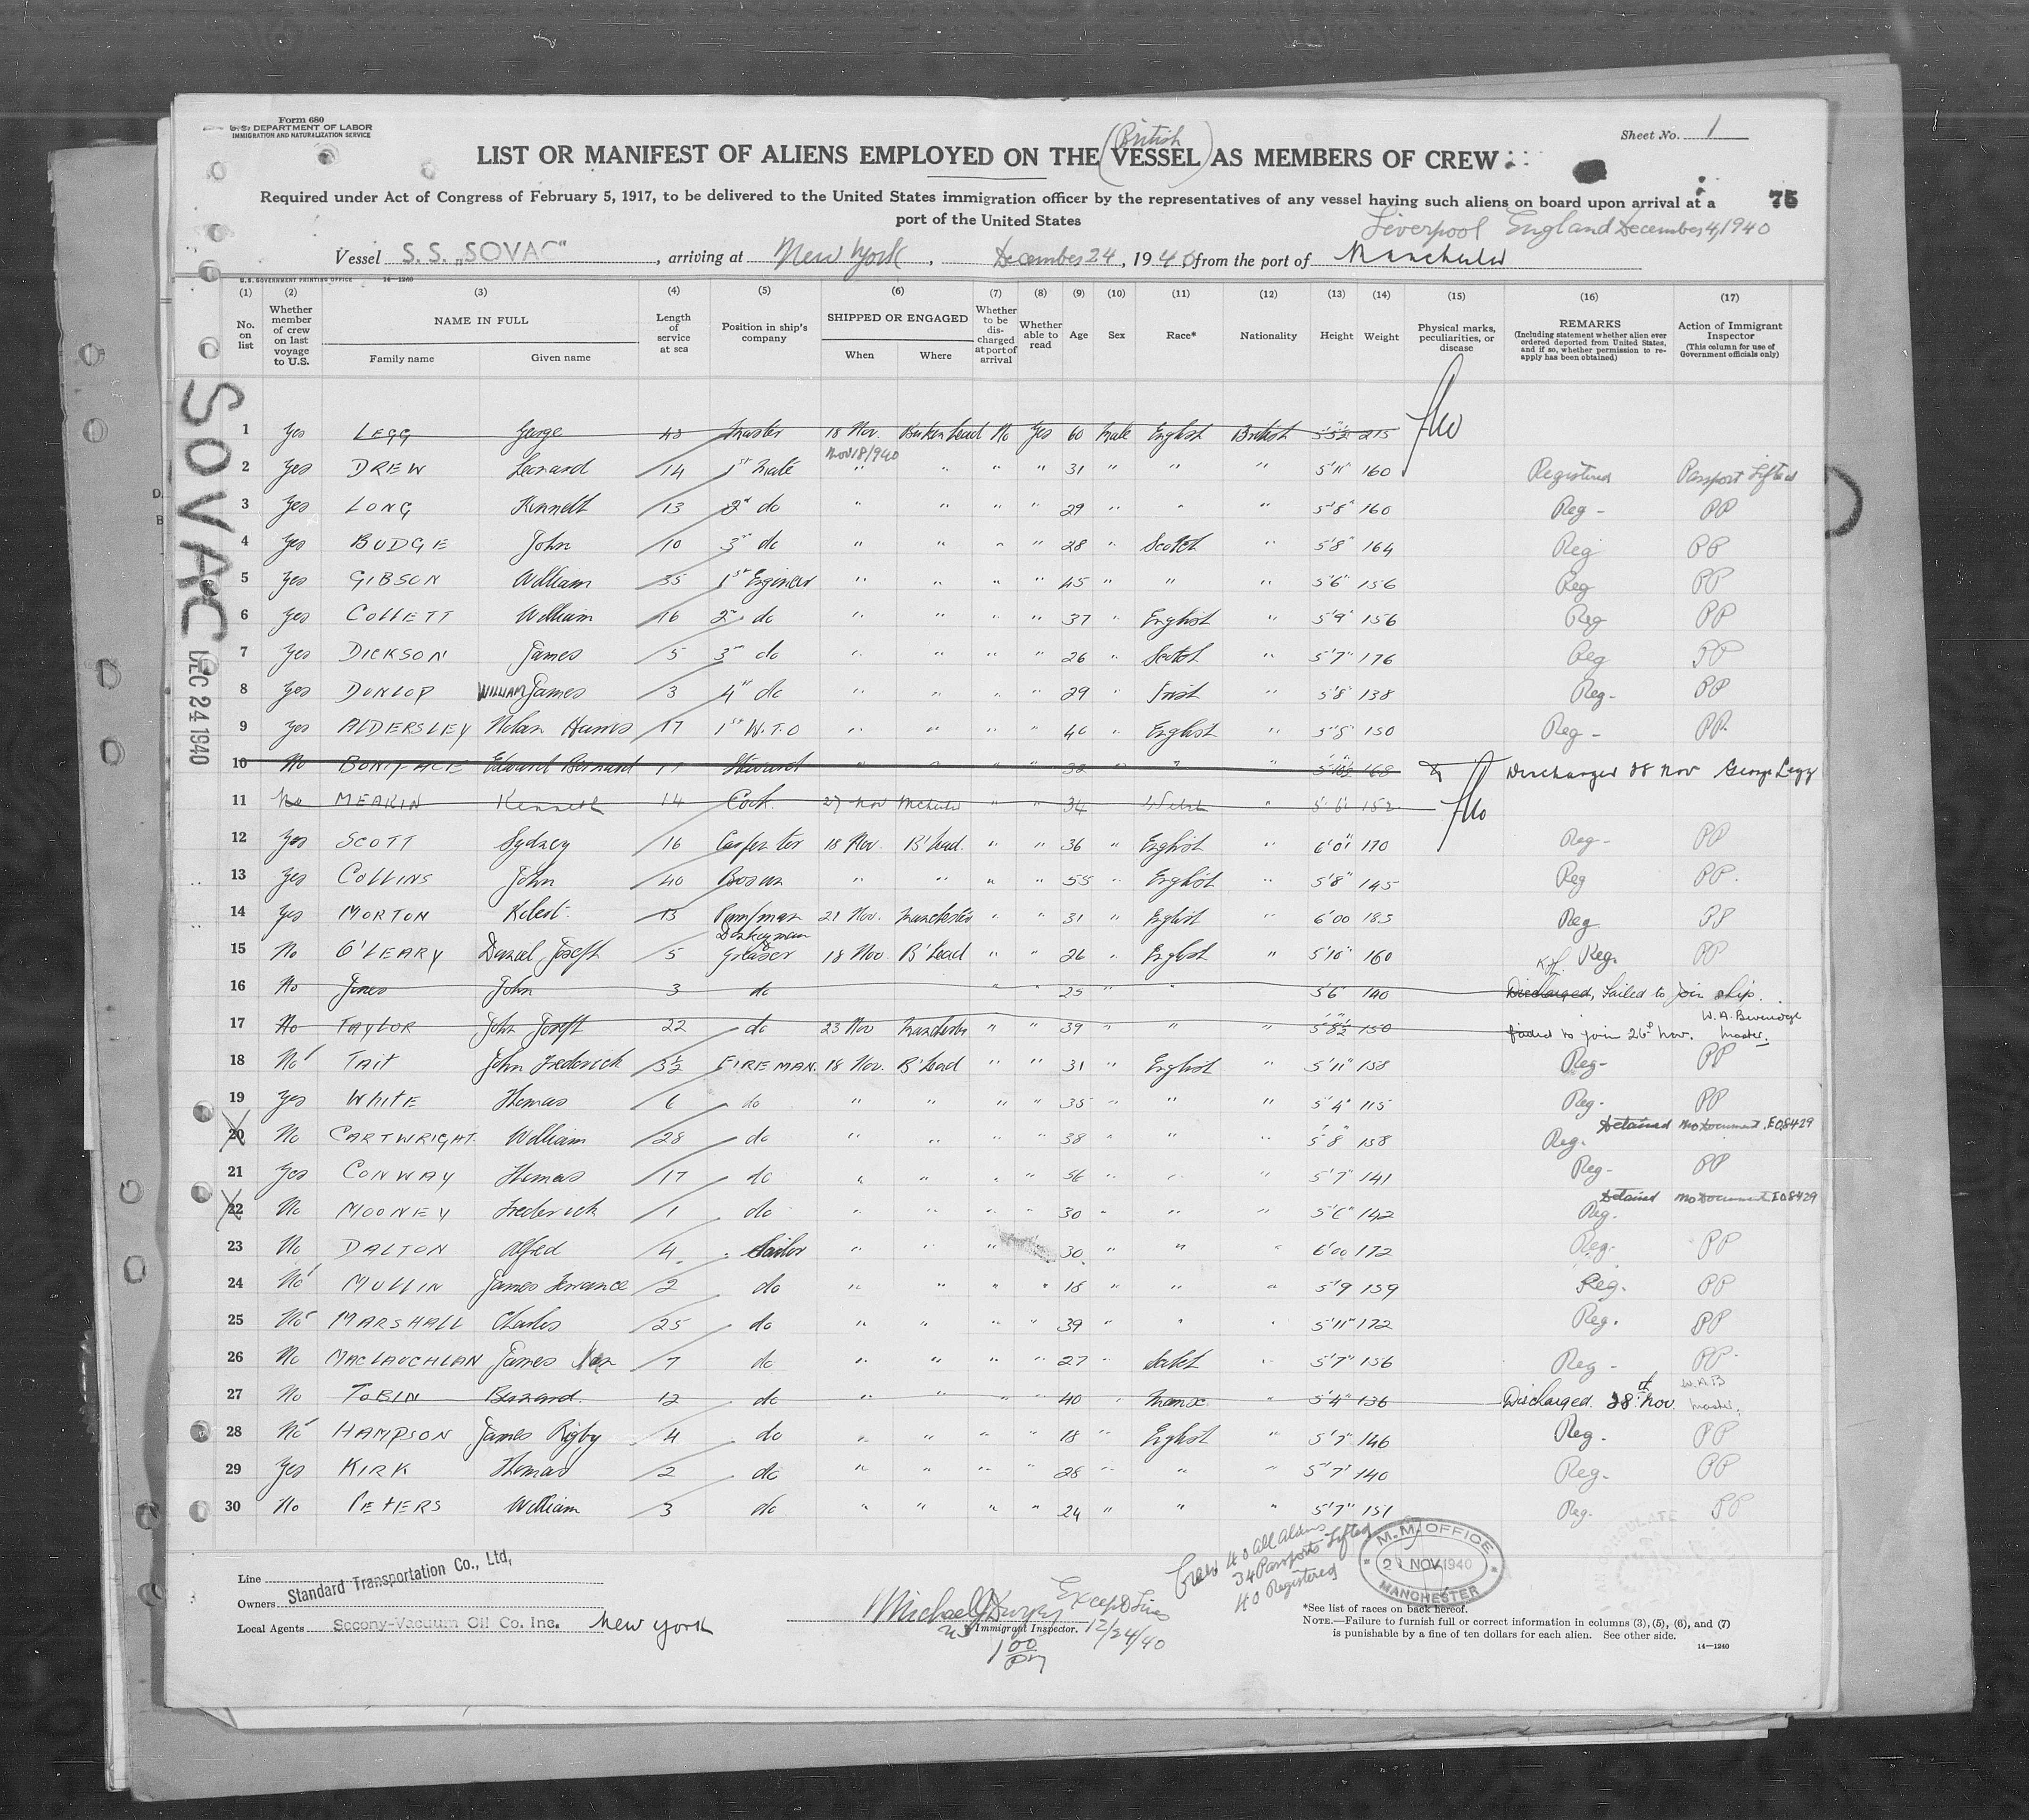 Form 680
U.S. DEPARTMENT OF LABOR
IMMIGRATION AND NATURALIZATION SERVICE
Sheet No. 1
(British)
LIST OR MANIFEST OF ALIENS EMPLOYED ON THE VESSEL AS MEMBERS OF CREW
Required under Act of Congress of February 5, 1917, to be delivered to the United States immigration officer by the representatives of any vessel having such aliens on board upon arrival at a
port of the United States
75
Liverpool England December 4, 1940
Vessel S.S. „SOVAC" , arriving at New York , December 24 , 1940 from the port of Manchester
U.S. GOVERNMENT PRINTING OFFICE 14—1240
(1) (2) (3) (4) (5) (6) (7) (8) (9) (10) (11) (12) (13) (14) (15) (16) (17)
No. on list
Whether member of crew on last voyage to U.S.
NAME IN FULL
Family name Given name
Length of service at sea
Position in ship's company
SHIPPED OR ENGAGED
When Where
Whether to be discharged at port of arrival
Whether able to read
Age
Sex
Race*
Nationality
Height
Weight
Physical marks, peculiarities, or disease
REMARKS
(Including statement whether alien ever ordered deported from United States, and if so, whether permission to reapply has been obtained)
Action of Immigrant Inspector
(This column for use of Government officials only)
SOVAC
DEC 24 1940
1 Yes LEGG George 43 Master 18 Nov. Birkenhead No Yes 60 Male English British 5'5½ 215
Nov 18/940
2 Yes DREW Leonard 14 1st Mate " " " " 31 " " " 5'11" 160 Registered Passport Lifted
3 Yes LONG Kenneth 13 2d do " " " " 29 " " " 5'8" 160 Reg - PP
4 Yes BUDGE John 10 3rd do " " " " 28 " Scotch " 5'8" 164 Reg PP
5 Yes GIBSON William 35 1st Engineer " " " " 45 " " " 5'6" 156 Reg PP
6 Yes COLLETT William 16 2d do " " " " 37 " English " 5'9" 156 Reg PP
7 Yes DICKSON James 5 3rd do " " " " 26 " Scotch " 5'7" 176 Reg PP
8 Yes DUNLOP WILLIAM James 3 4th do " " " " 29 " Irish " 5'8" 138 Reg. PP
9 Yes ALDERSLEY Nolan Harris 17 1st W.T.O " " " " 40 " English " 5'8" 150 Reg - PP.
10 No BONIFACE Edward Bernard Steward " " " " 32 " " " 5'10½ 168 Discharged 28 Nov George Legg
11 No MEAKIN Kenneth 14 Cook 27 Nov Mchester " " 34 " Welsh " 5'6" 152
12 Yes SCOTT Sydney 16 Carpenter 18 Nov. B'head. " " 36 " English " 6'0" 170 Reg - PP
13 Yes COLLINS John 40 Bosun " " " " 55 " English " 5'8" 145 Reg PP.
14 Yes MORTON Robert. 13 Pumpman 21 Nov. Manchester " " 31 " English " 6'00 183 Reg PP
Donkeyman
15 No O'LEARY Daniel Joseph 5 Greaser 18 Nov. B'head " " 26 " English " 5'10" 160 Reg. PP
16 No Jones John 3 do " " 25 " " 5'6" 140 Discharged, failed to join ship.
17 No TAYLOR John Joseph 22 do 23 Nov Manchester " " 39 " " " 5'8½ 150 failed to join 26th Nov. W. A. Beveridge Master.
18 No TAIT John Frederick 3½ FIREMAN. 18 Nov. B'head " " 31 " English " 5'11" 158 Reg- PP
19 Yes WHITE Thomas 6 do " " " " 35 " " " 5'4" 115 Reg. PP
20 No CARTWRIGHT William 28 do " " " " 38 " " " 5'8" 158 Reg. Detained No Document. E08429
21 Yes CONWAY Thomas 17 do " " " " 56 " " " 5'7" 141 Reg- PP
22 No MOONEY Frederick 1 do " " " " 30 " " " 5'6" 142 Reg. Detained No Document E08429
23 No DALTON Alfred 4 Sailor " " " 30 " " " 6'00 172 Reg. PP
24 No MULLIN James Terrance 2 do " " " " 18 " " " 5'9 159 Reg. PP
25 No MARSHALL Charles 25 do " " " " 39 " " " 5'11" 172 Reg. PP
26 No MACLAUCHLAN James 7 do " " " " 27 " Scotch " 5'7" 156 Reg - PP.
27 No TOBIN Bernard. 12 do " " " " 40 " Manx " 5'4" 136 Discharged 28th Nov. W.A.B Master.
28 No HAMPSON James Rigby 4 do " " " " 18 " English " 5'7" 146 Reg. PP
29 Yes KIRK Thomas 2 do " " " " 28 " " " 5'7" 140 Reg. PP
30 No PETERS William 3 do " " " " 24 " " " 5'7" 151 Reg. PP
Crew 40 all aliens
34 Passports Lifted
40 Registered
M.M. OFFICE
21 NOV 1940
MANCHESTER
Line
Owners Standard Transportation Co., Ltd.
Local Agents Socony-Vacuum Oil Co. Inc. New York
Except Lines
US Immigrant Inspector. 12/24/40
1 00 PM
*See list of races on back hereof.
NOTE.—Failure to furnish full or correct information in columns (3), (5), (6), and (7)
is punishable by a fine of ten dollars for each alien. See other side.
14—1240